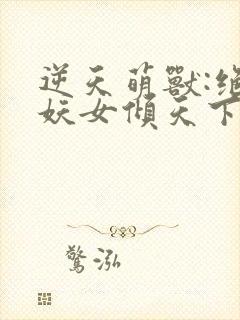 逆天萌獸:絕
妖女傾天下
驚泓